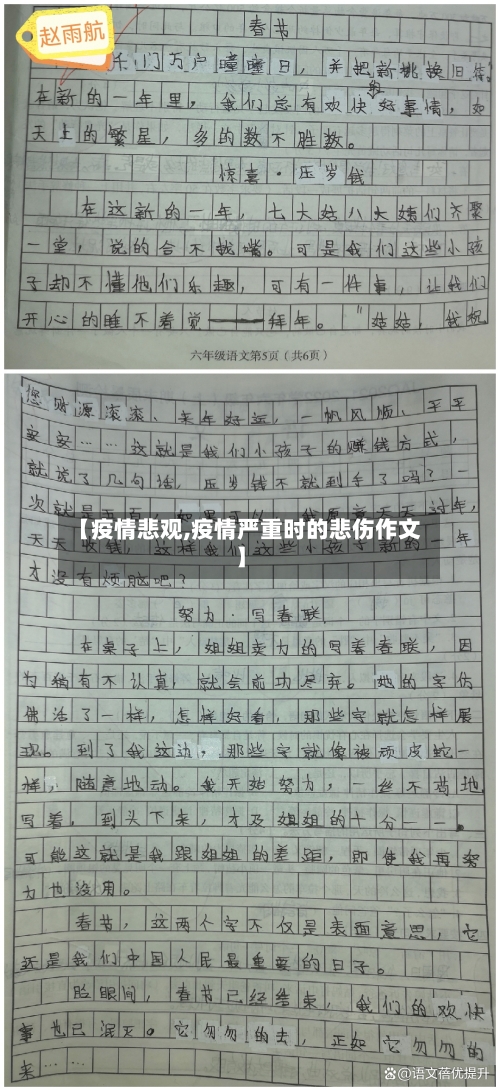 赵雨航
春节
千门万户曈曈日，并把新桃换旧符。
在新的一年里，我们总有欢快的好事情，如
天上的繁星，多的数不胜数。
惊喜·压岁钱
在这新的一年，七大姑八大姨们齐聚
一堂，说的合不拢嘴。可是我们这些小孩
子却不懂他们乐趣，可有一件事，让我们
开心的睡不着觉——拜年。"姑姑，我祝
六年级语文第5页（共6页）
您财源滚滚、来年好运，一帆风顺、平平
安安……这就是我们小孩子的赚钱方式，
就说了几句话，压岁钱不就到手了吗？一
次就是
过年，
【疫情悲观,疫情严重时的悲伤作文
】
天天收钱，这样我们这些小孩子新的一年
才没有烦脑吧？
努力·写春联
在桌子上，姐姐卖力的写着春联，因
为稍有不认真，就会前功尽弃。她的字仿
佛活了一样，怎样好看，那些字就怎样展
现。到了我这边，那些字就像被顽皮蛇一
样，随意地动。我开始努力，一丝不苟地
写着，到头下来，才及姐姐的十分一一。
可能这就是我跟姐姐的差距，即使我再努
力也没用。
春节，这两个字不仅是表面意思，它
还是我们中国人民最重要的日子。
眙眼间，春节已经结束，我们的欢快
事也已泯灭。它匆匆的去，正如它匆匆的
来……
@语文蓓优提升